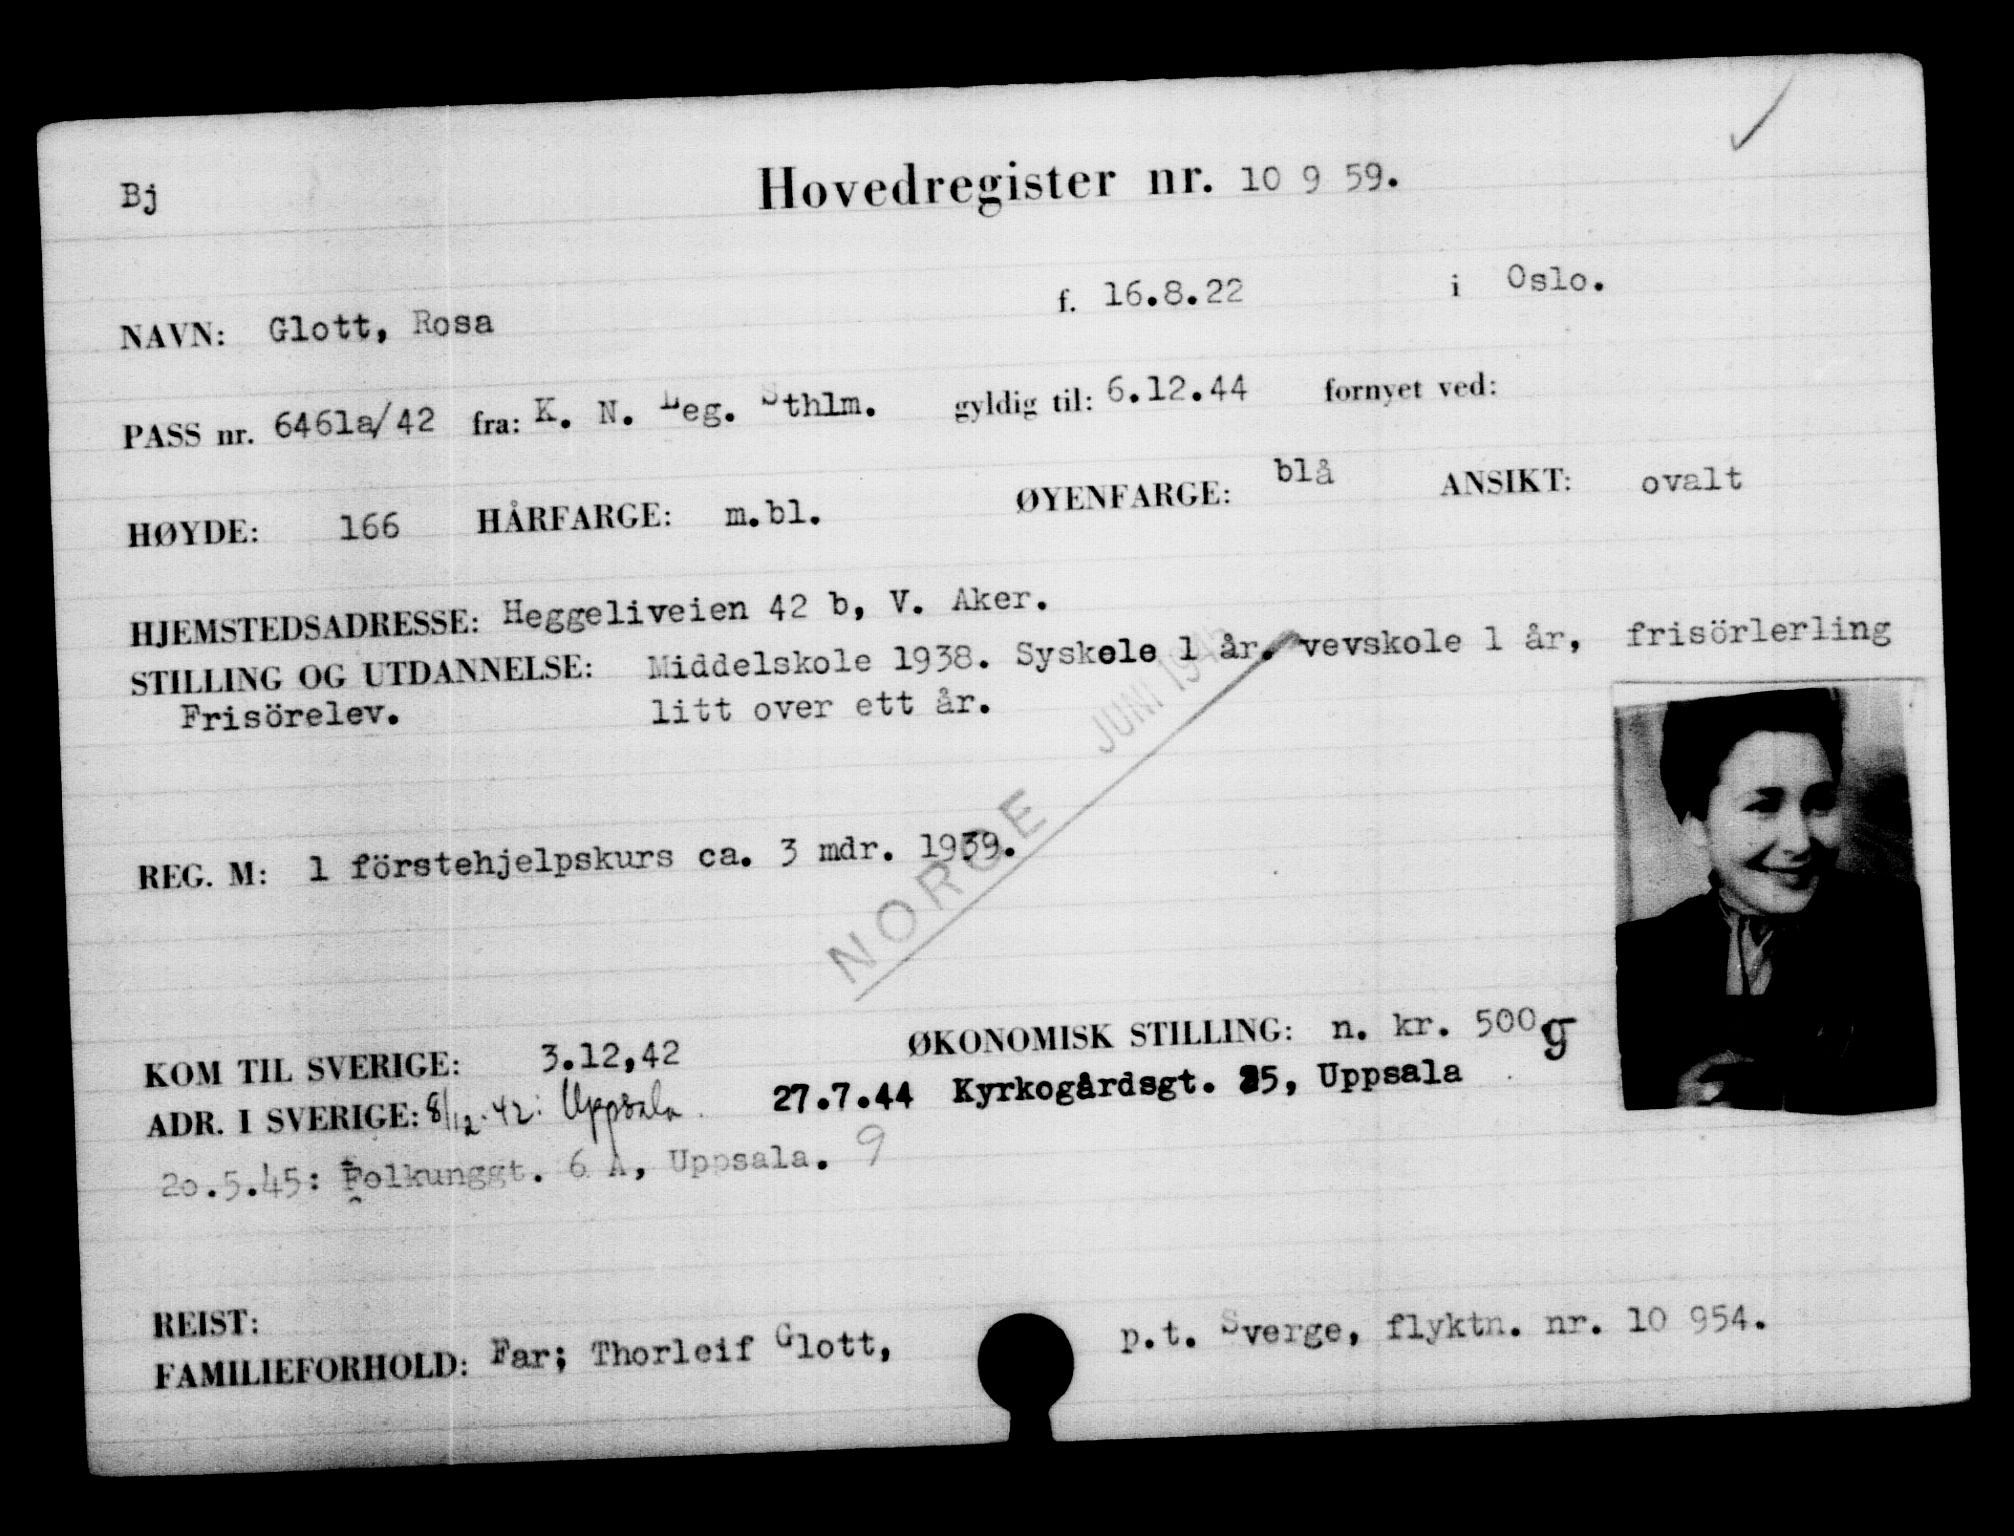 Bj
Hovedregister nr. 10 9 59.
NAVN: Glott, Rosa f. 16.8.22 i Oslo.
PASS nr. 6461a/42 fra: K. N. Leg. Sthlm. gyldig til: 6.12.44 fornyet ved:
HØYDE: 166 HÅRFARGE: m.bl. ØYENFARGE: blå ANSIKT: ovalt
HJEMSTEDSADRESSE: Heggeliveien 42 b, V. Aker.
STILLING OG UTDANNELSE: Middelskole 1938. Syskole 1 år. vevskole 1 år, frisörlerling
Frisörelev. litt over ett år.
NORGE JUNI 1945
REG. M: 1 förstehjelpskurs ca. 3 mdr. 1939.
KOM TIL SVERIGE: 3.12,42 ØKONOMISK STILLING: n. kr. 500 g
ADR. I SVERIGE: 8/12.42: Uppsala. 27.7.44 Kyrkogårdsgt. 25, Uppsala
20.5.45: Folkunggt. 6 A, Uppsala. 9
REIST:
FAMILIEFORHOLD: Far; Thorleif Glott, p.t. Sverge, flyktn. nr. 10 954.